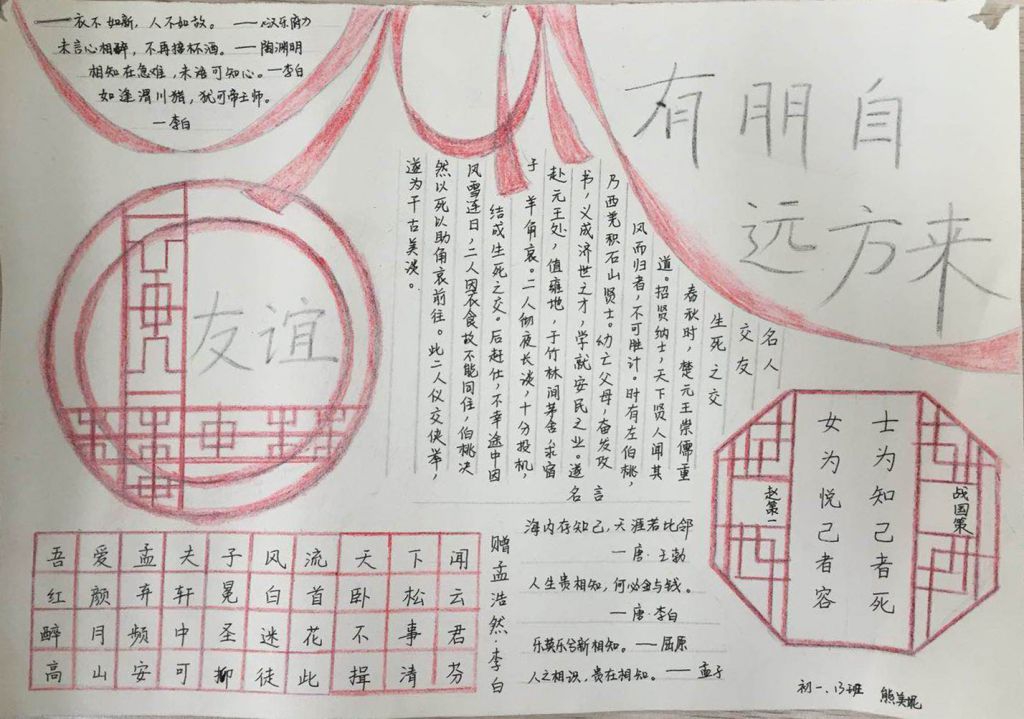 有朋自
远方来
——衣不如新，人不如故。 ——汉乐府
未言心相醉，不再接杯酒。——陶渊明
相知在急难，未语可知心。—李白
如逢渭川猎，犹可帝王师。
—李白
友谊
名人
交友
生死之交
春秋时，楚元王崇儒重
道。招贤纳士，天下贤人闻其
风而归者，不可胜计。时有左伯桃，
乃西羌积石山贤士。幼亡父母，奋发攻
书，义成济世之才，学就安民之业。遂
赴元王处，值雍地，于竹林间茅舍求宿
于 羊角哀。二人彻夜长谈，十分投机，
结成生死之交。后赶仕，不幸途中因
风雪连日，二人因衣食故不能同住，伯桃决
然以死以助角哀前往。此二人仅交侠举，
遂为千古美谈。
战国策
士为知己者死
女为悦己者容
赵第一
赠孟浩然·李白
吾爱孟夫子风流天下闻
红颜弃轩冕白首卧松云
醉月频中圣迷花不事君
高山安可柳徒此揖清芬
名言
海内存知己，天涯若比邻
—唐·王勃
人生贵相知，何必金与钱。
—唐·李白
乐莫乐兮新相知。—屈原
人之相识，贵在相知。——孟子
初一、13班 熊美妮